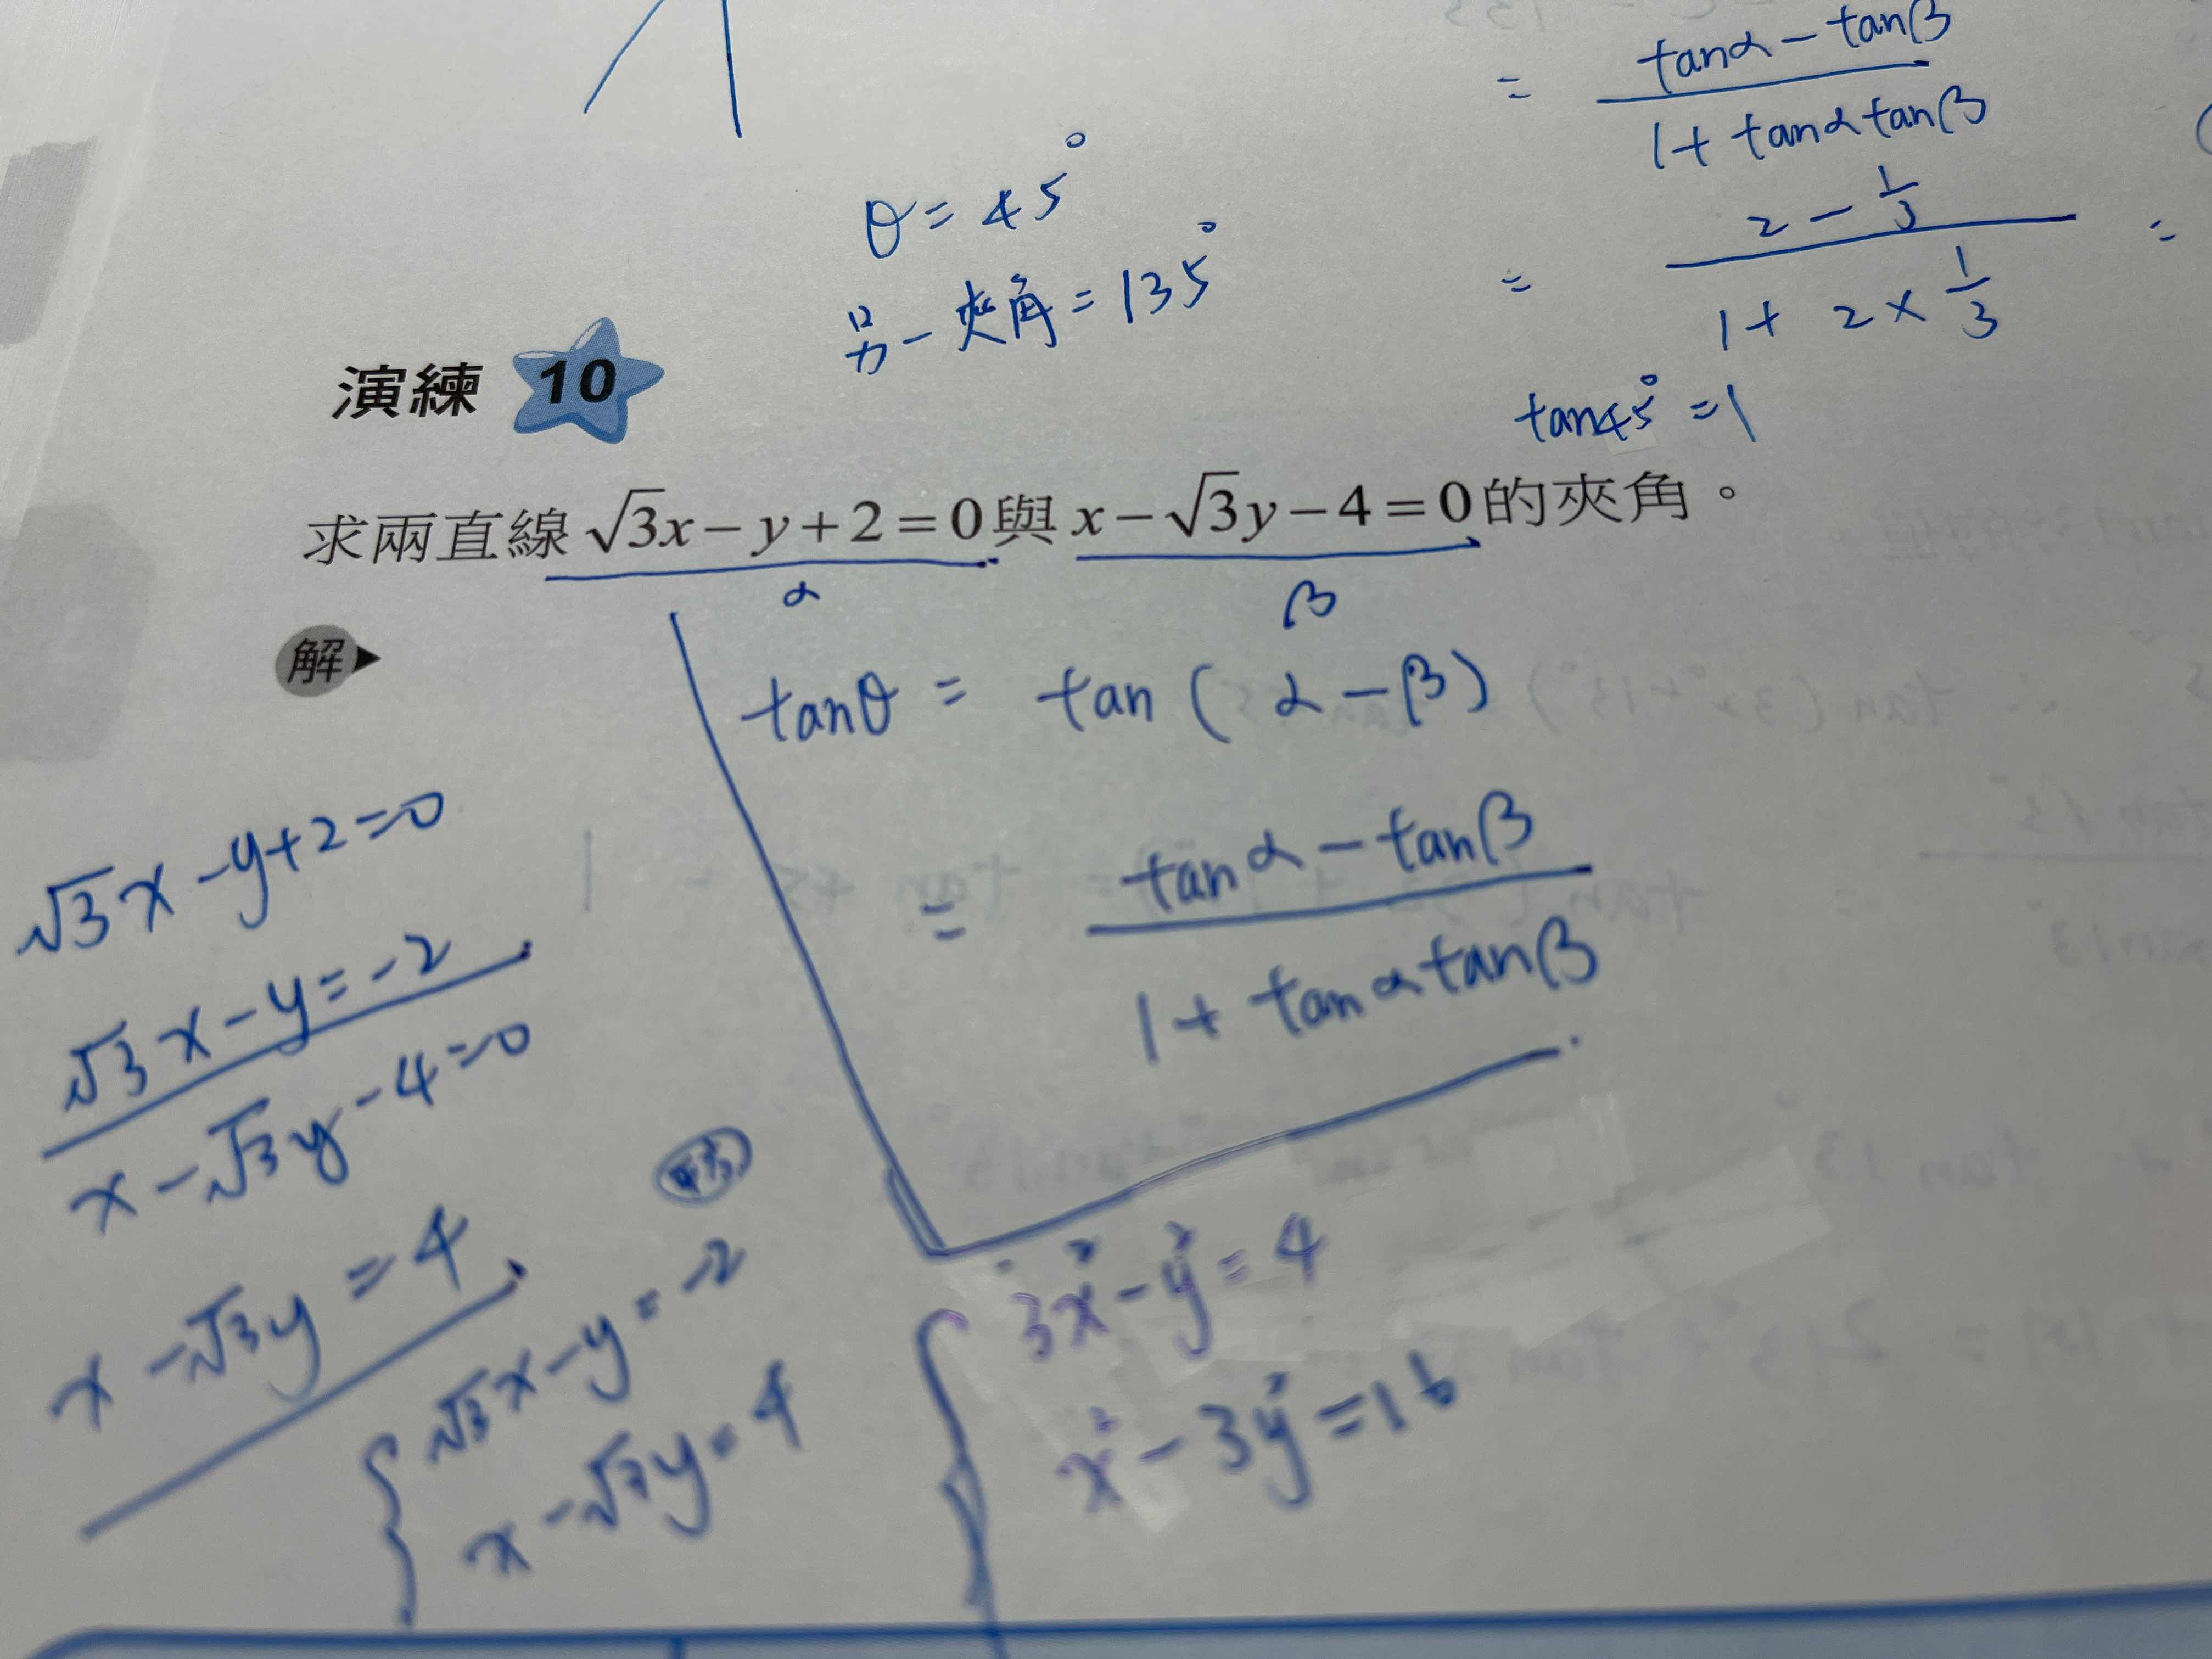 = (tanα - tanβ)/(1 + tanα tanβ)
θ = 45°
= (2 - 1/3)/(1 + 2 × 1/3) =
另一夾角 = 135°
tan45° = 1
演練 10
求兩直線 √3x - y + 2 = 0 與 x - √3y - 4 = 0 的夾角。
α β
解▶
tanθ = tan(α - β)
= (tanα - tanβ)/(1 + tanα tanβ)
√3x - y + 2 = 0
√3x - y = -2
x - √3y - 4 = 0
x - √3y = 4
{ √3x - y = -2
x - √3y = 4
{ 3x² - y² = 4
x² - 3y² = 16